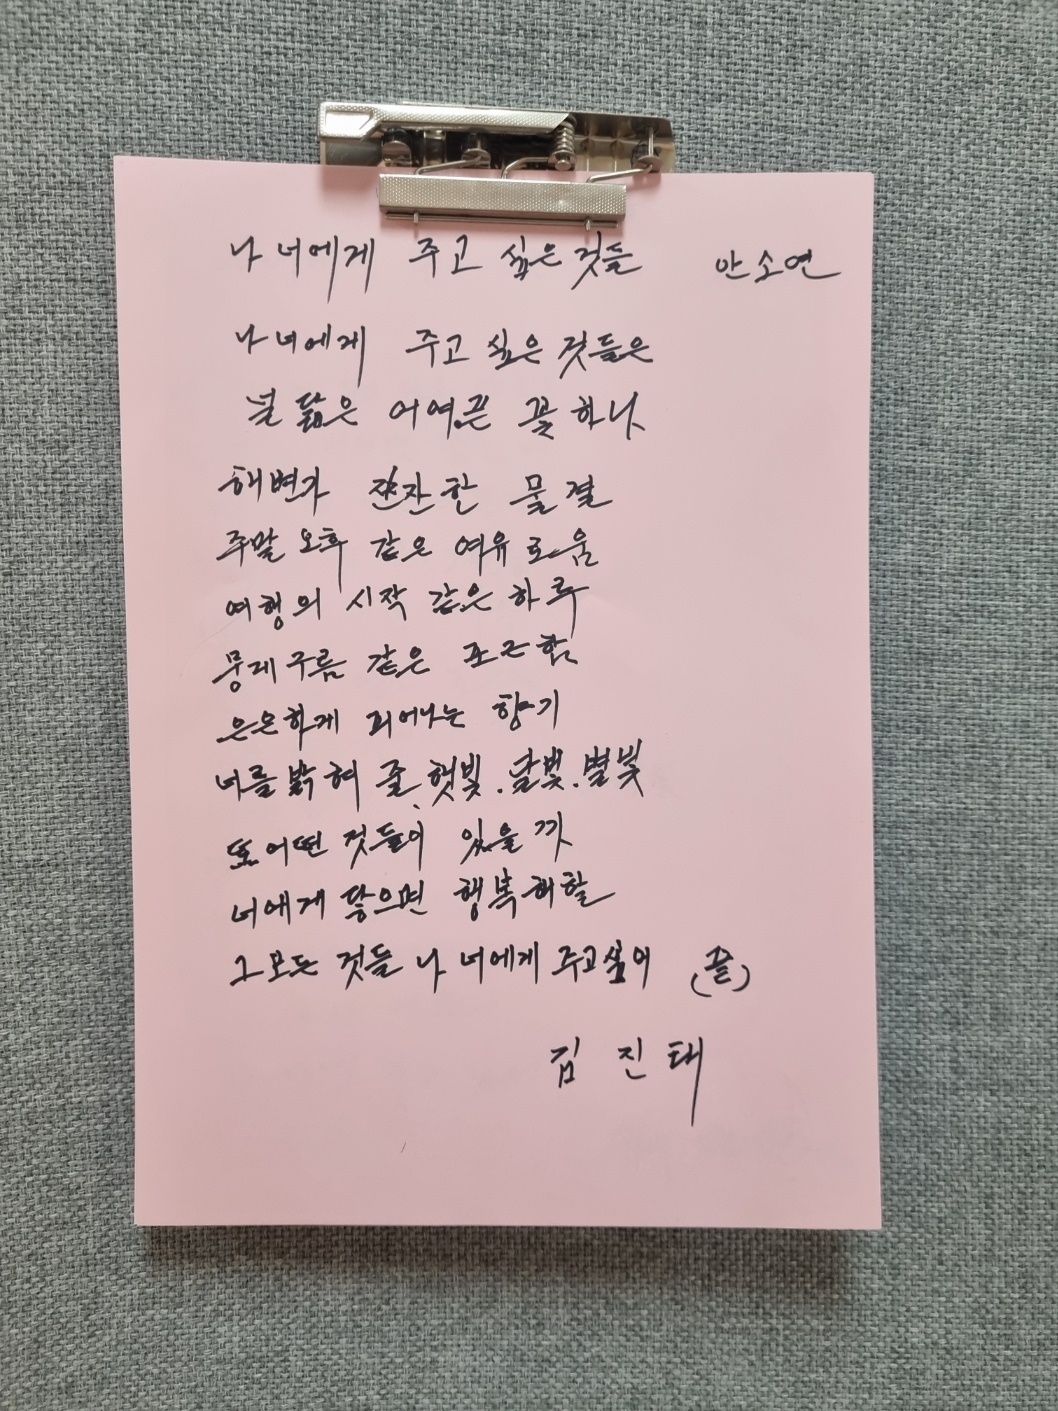 나 너에게 주고 싶은 것들 안소연
나 너에게 주고 싶은 것들은
널 닮은 어여쁜 꽃 하나
해변가 잔잔한 물결
주말 오후 같은 여유로움
여행의 시작 같은 하루
뭉게구름 같은 포근함
은은하게 피어나는 향기
너를 밝혀 줄 햇빛.달빛.별빛
또 어떤 것들이 있을까
너에게 닿으면 행복해할
그 모든 것들 나 너에게 주고싶어 (끝)
김 진 태